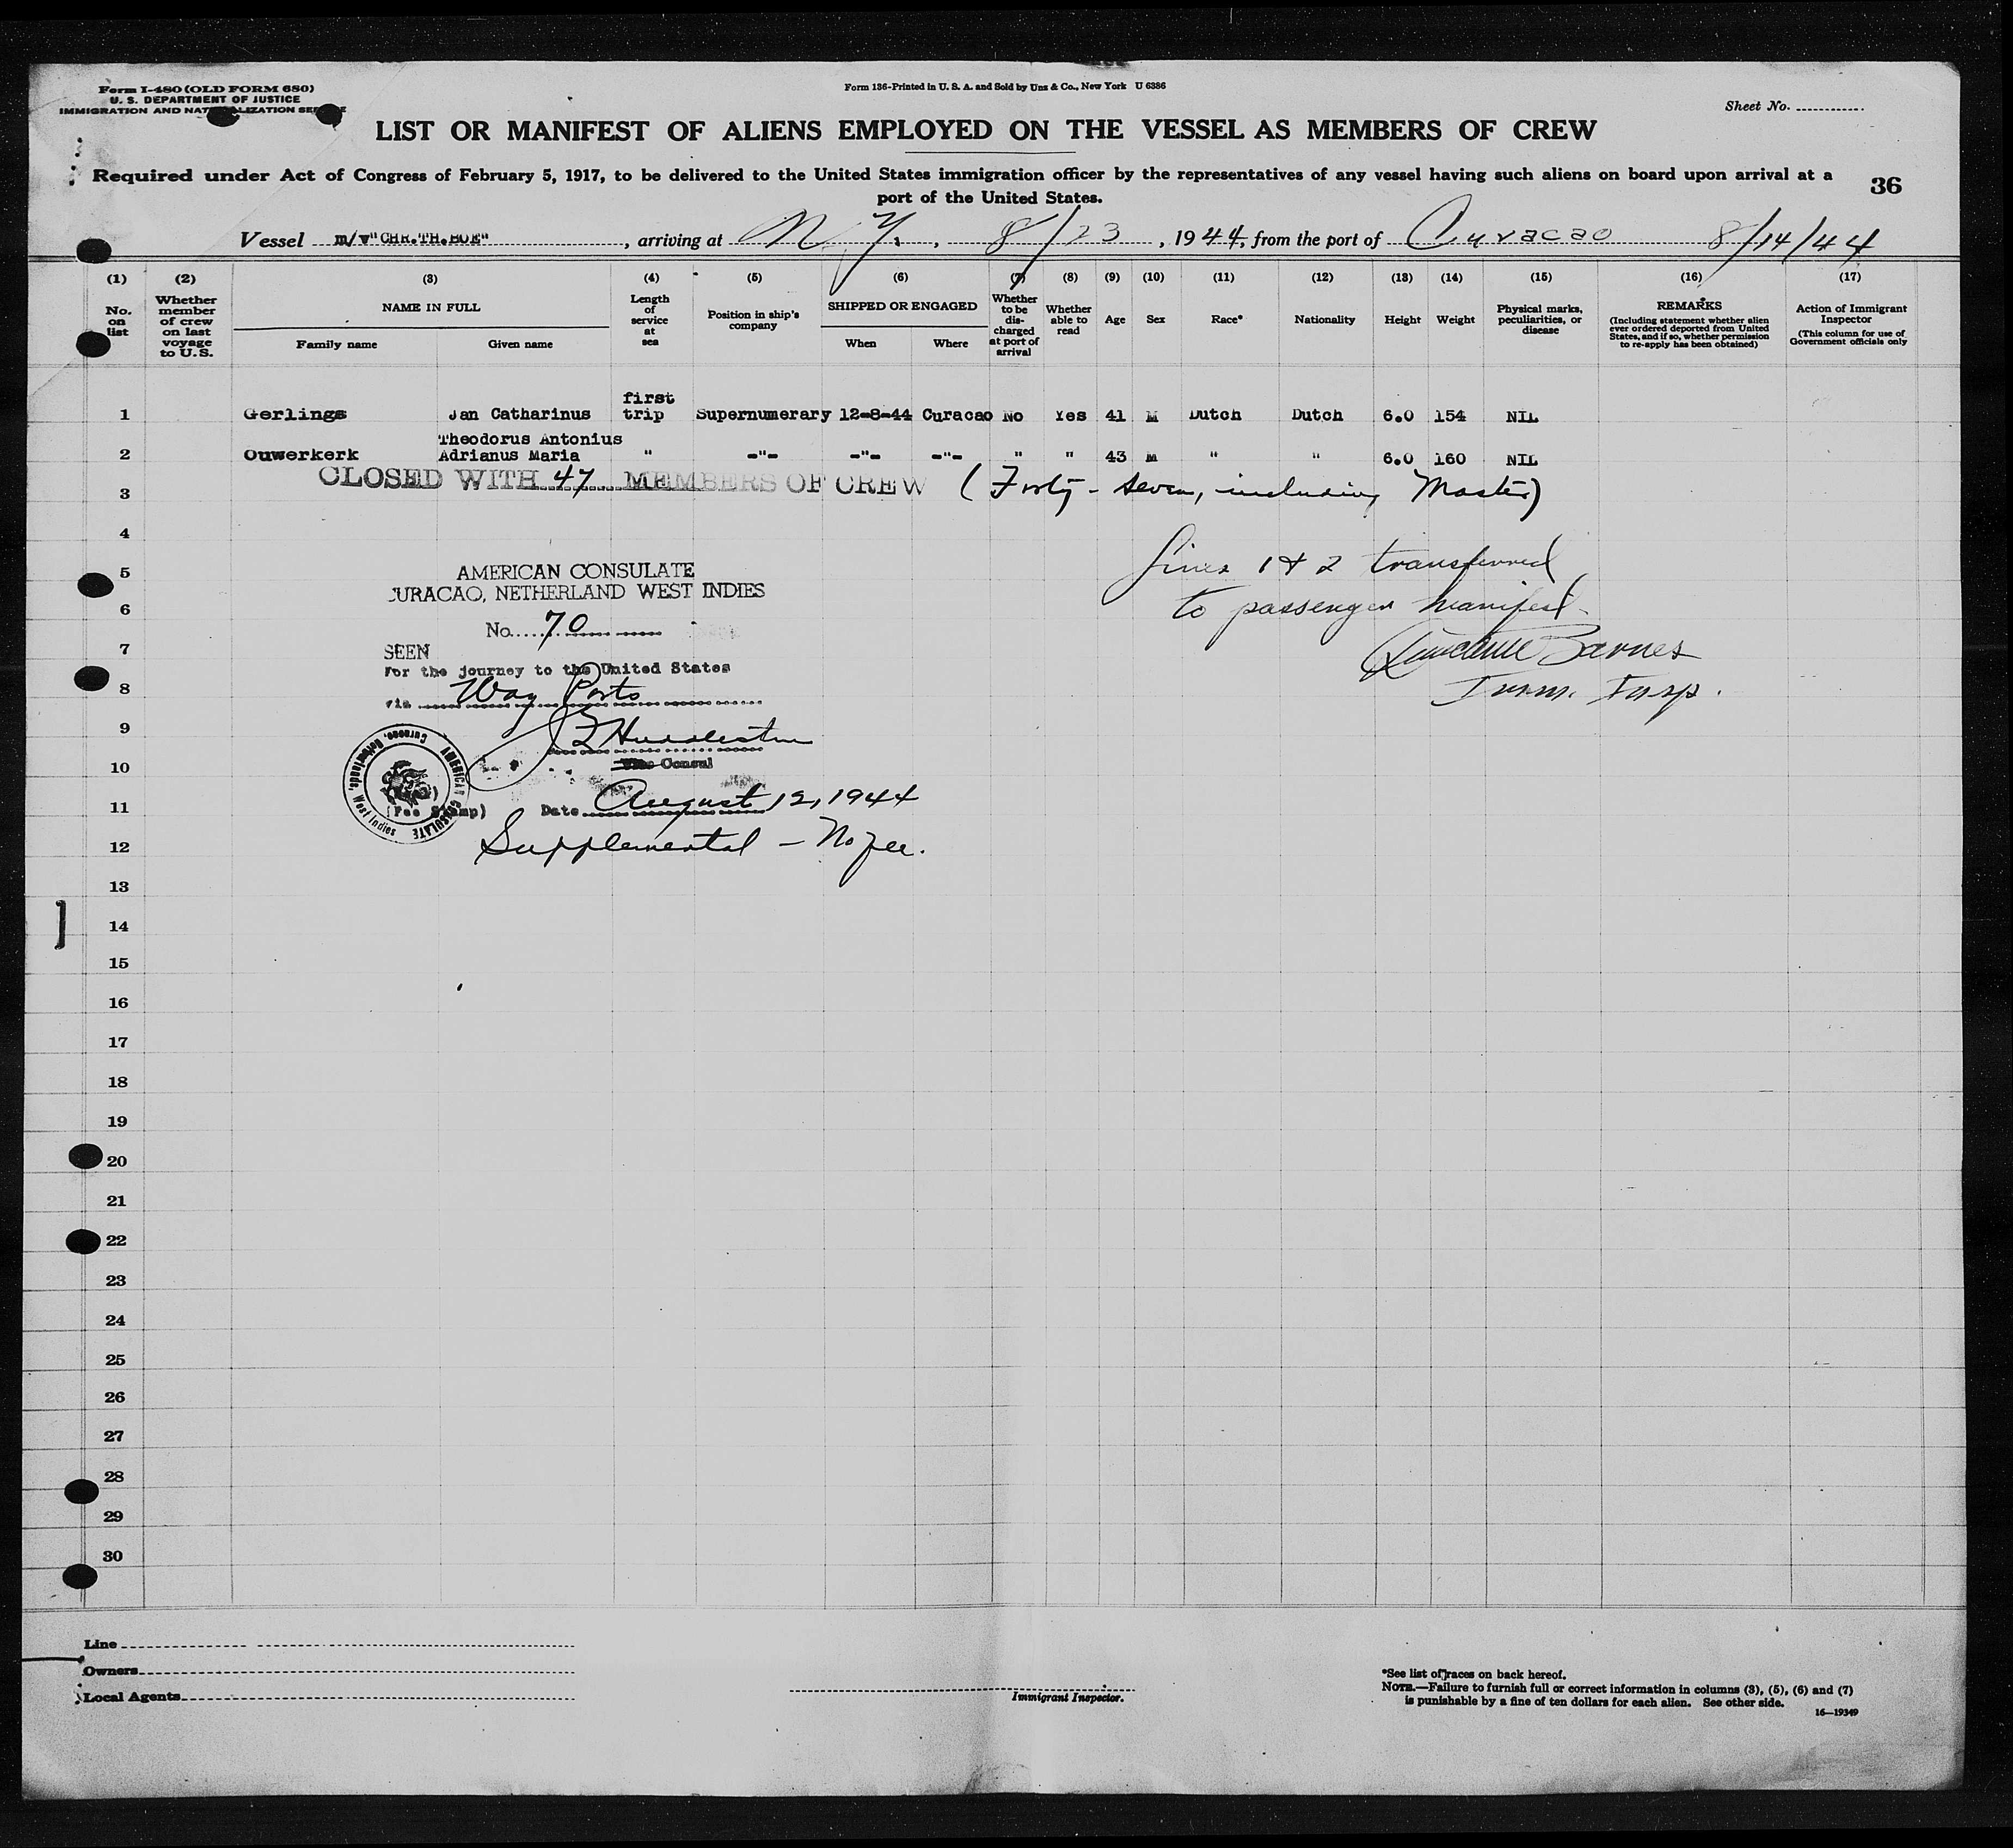 Form I-480 (OLD FORM 680)
U. S. DEPARTMENT OF JUSTICE
IMMIGRATION AND NATURALIZATION SERVICE
Form 136-Printed in U. S. A. and Sold by Unz & Co., New York U 6386
Sheet No.
LIST OR MANIFEST OF ALIENS EMPLOYED ON THE VESSEL AS MEMBERS OF CREW
Required under Act of Congress of February 5, 1917, to be delivered to the United States immigration officer by the representatives of any vessel having such aliens on board upon arrival at a
port of the United States.
36
Vessel m/v"CHR.TH.BOE", arriving at N.Y., 8/23, 1944, from the port of Curacao 8/14/44
(1) (2) (3) (4) (5) (6) (7) (8) (9) (10) (11) (12) (13) (14) (15) (16) (17)
No. on list
Whether member of crew on last voyage to U. S.
NAME IN FULL
Family name Given name
Length of service at sea
Position in ship's company
SHIPPED OR ENGAGED
When Where
Whether to be discharged at port of arrival
Whether able to read
Age
Sex
Race*
Nationality
Height
Weight
Physical marks, peculiarities, or disease
REMARKS
(Including statement whether alien ever ordered deported from United States, and if so, whether permission to re-apply has been obtained)
Action of Immigrant Inspector
(This column for use of Government officials only
1 Gerlings Jan Catharinus first trip Supernumerary 12-8-44 Curacao No Yes 41 M Dutch Dutch 6.0 154 NIL
2 Ouwerkerk Theodorus Antonius Adrianus Maria " -"- -"- -"- " " 43 M " " 6.0 160 NIL
CLOSED WITH 47 MEMBERS OF CREW (Forty-seven, including Master)
3
4
Lines 1 & 2 transferred
to passenger manifest-
Barnes
Imm. Insp.
AMERICAN CONSULATE
CURACAO, NETHERLAND WEST INDIES
No. 70
SEEN
For the journey to the United States
via Way Ports
Vice Consul
AMERICAN CONSULATE
Curacao, Netherlands, West Indies
(Fee Stamp)
Date August 12, 1944
Supplemental - No fee.
5
6
7
8
9
10
11
12
13
14
15
16
17
18
19
20
21
22
23
24
25
26
27
28
29
30
Line
Owners
Local Agents
Immigrant Inspector.
*See list of races on back hereof.
NOTE.—Failure to furnish full or correct information in columns (3), (5), (6) and (7)
is punishable by a fine of ten dollars for each alien. See other side.
16—19349